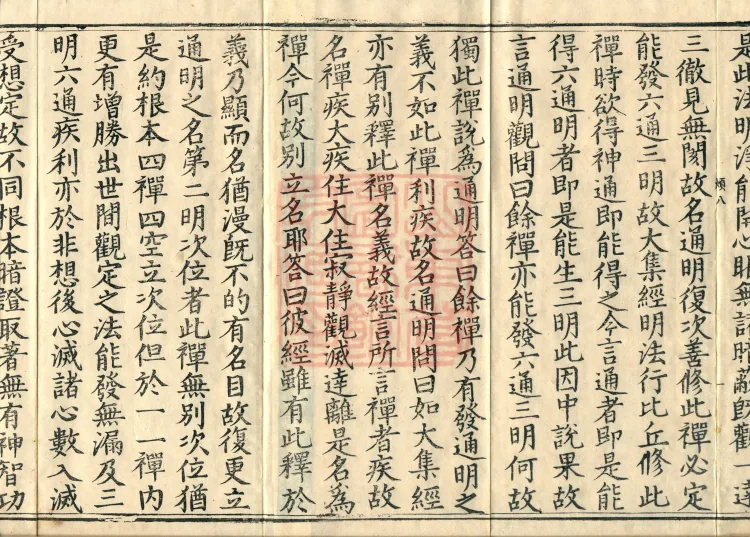 是此法明淨能開心眼無諸暗蔽既觀一達
三徹見無閡故名通明復次善修此禪必定
能發六通三明故大集經明法行比丘修此
禪時欲得神通即能得之今言通者即是能
得六通明者即是能生三明此因中說果故
言通明觀問曰餘禪亦能發六通三明何故
獨此禪說為通明答曰餘禪乃有發通明之
義不如此禪利疾故名通明問曰如大集經
亦有別釋此禪名義故經言所言禪者疾故
名禪疾大疾住大住寂靜觀滅達離是名為
禪今何故別立名耶答曰彼經雖有此釋於
義乃顯而名猶漫既不的有名目故復更立
通明之名第二明次位者此禪無別次位猶
是約根本四禪四空立次位但於一一禪內
更有增勝出世間觀定之法能發無漏及三
明六通疾利亦於非想後心滅諸心數入滅
受想定故不同根本暗證取著無有神智功